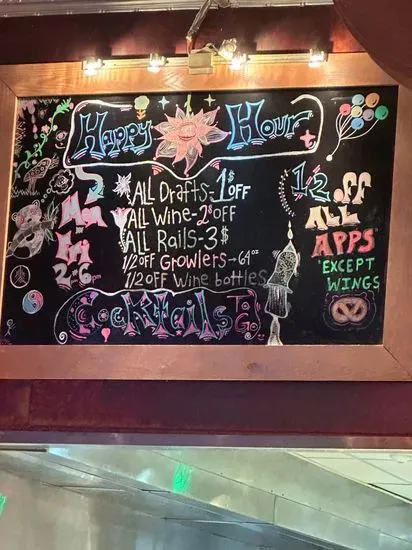 Happy Hour
Mon
Fri
2-6pm
ALL Drafts-1$ OFF
ALL Wine-2$ OFF
ALL Rails-3$
1/2 OFF Growlers→64oz
1/2 OFF Wine bottles
1/2 off
ALL
APPS
*EXCEPT
WINGS
Cocktails To Go